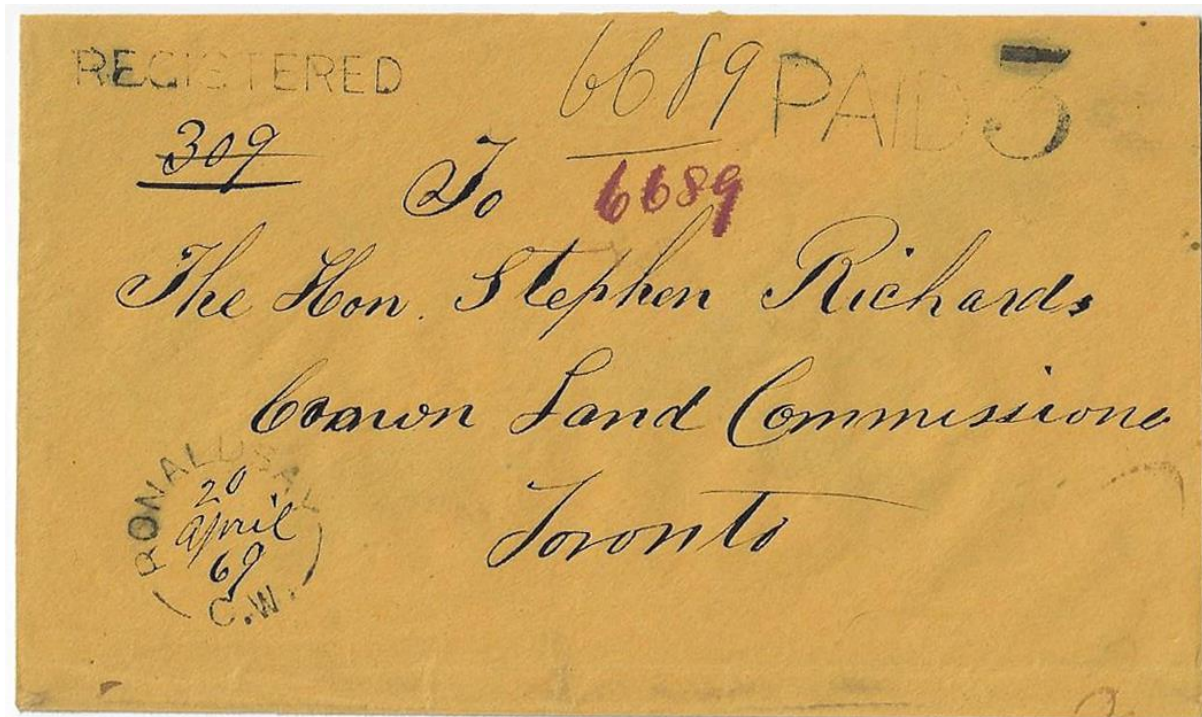 REGISTERED
6689
PAID 3
309
To
6689
The Hon. Stephen Richards
Crown Land Commissione
Toronto
RONALDSAY
20
April
69
C.W.